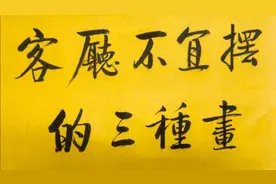 客廳不宜摆
的三種畫